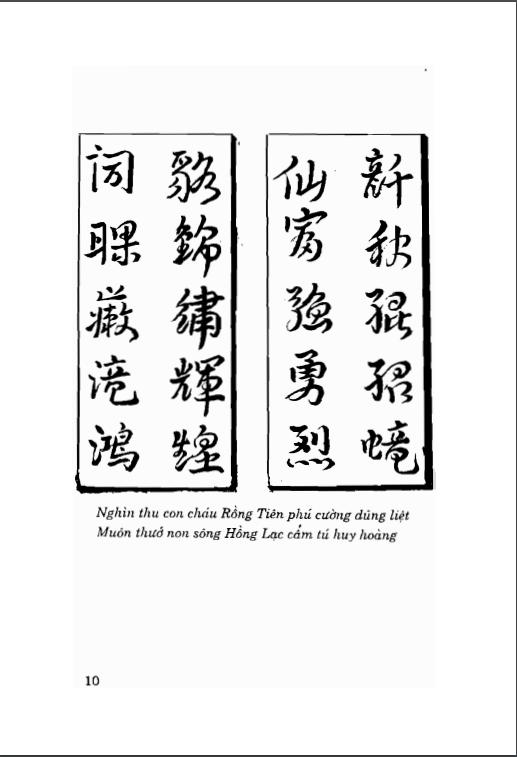 秋𡥵𡥙
仙富強勇烈
滝鴻
貉錦繡輝煌
Nghìn thu con cháu Rồng Tiên phú cường dũng liệt
Muôn thưở non sông Hồng Lạc cẩm tú huy hoàng
10